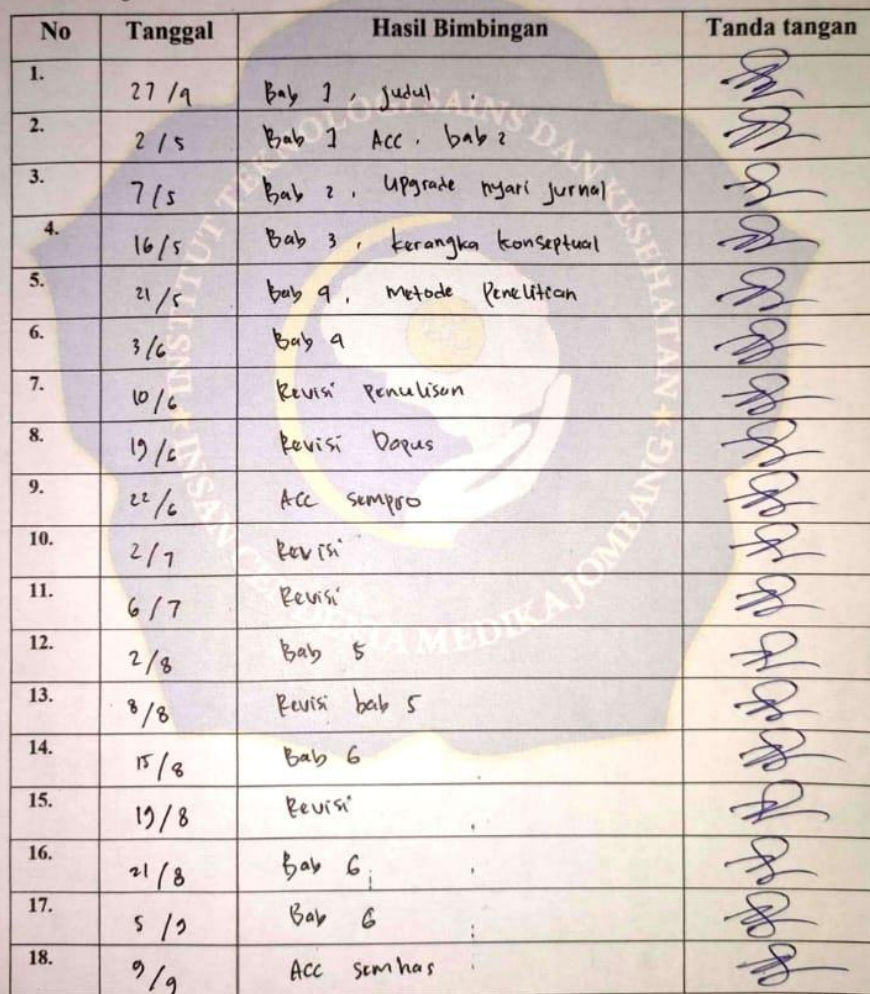 No Tanggal Hasil Bimbingan Tanda tangan
1. 27/4 Bab 1, judul
2. 2/5 Bab 1 Acc, bab 2
3. 7/5 Bab 2, Upgrade nyari jurnal
4. 16/5 Bab 3, kerangka konseptual
5. 21/5 Bab 4, metode Penelitian
6. 3/6 Bab 4
7. 10/6 Revisi penulisan
8. 19/6 Revisi Dapus
9. 22/6 Acc sempro
10. 2/7 Revisi
11. 6/7 Revisi
12. 2/8 Bab 5
13. 8/8 Revisi bab 5
14. 15/8 Bab 6
15. 19/8 Revisi
16. 21/8 Bab 6
17. 5/9 Bab 6
18. 9/9 Acc semhas
INSTITUT TEKNOLOGI SAINS DAN KESEHATAN
INSAN CENDEKIA MEDIKA JOMBANG